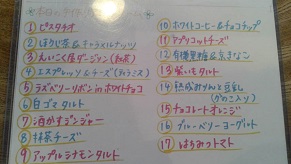 ① ピスタチオ
② ほうじ茶&キャラメルナッツ
③ えいこく屋ダージリン(紅茶)
④ エスプレッソ&チーズ(ティラミス)
⑤ ラズベリーリボン in ホワイトチョコ
⑥ 白ゴマタルト
⑦ 酒かすジンジャー
⑧ 抹茶チーズ
⑨ アップルシナモンタルト
⑩ ホワイトコーヒー&チョコチップ
⑪ アプリコットチーズ
⑫ 有機黒糖&京きなこ
⑬ 紫いもタルト
⑭ 熟成みりんと豆乳
(かのこ入り)
⑮ チョコレートオレンジ
⑯ ブルーベリーヨーグルト
⑰ はちみつトマト